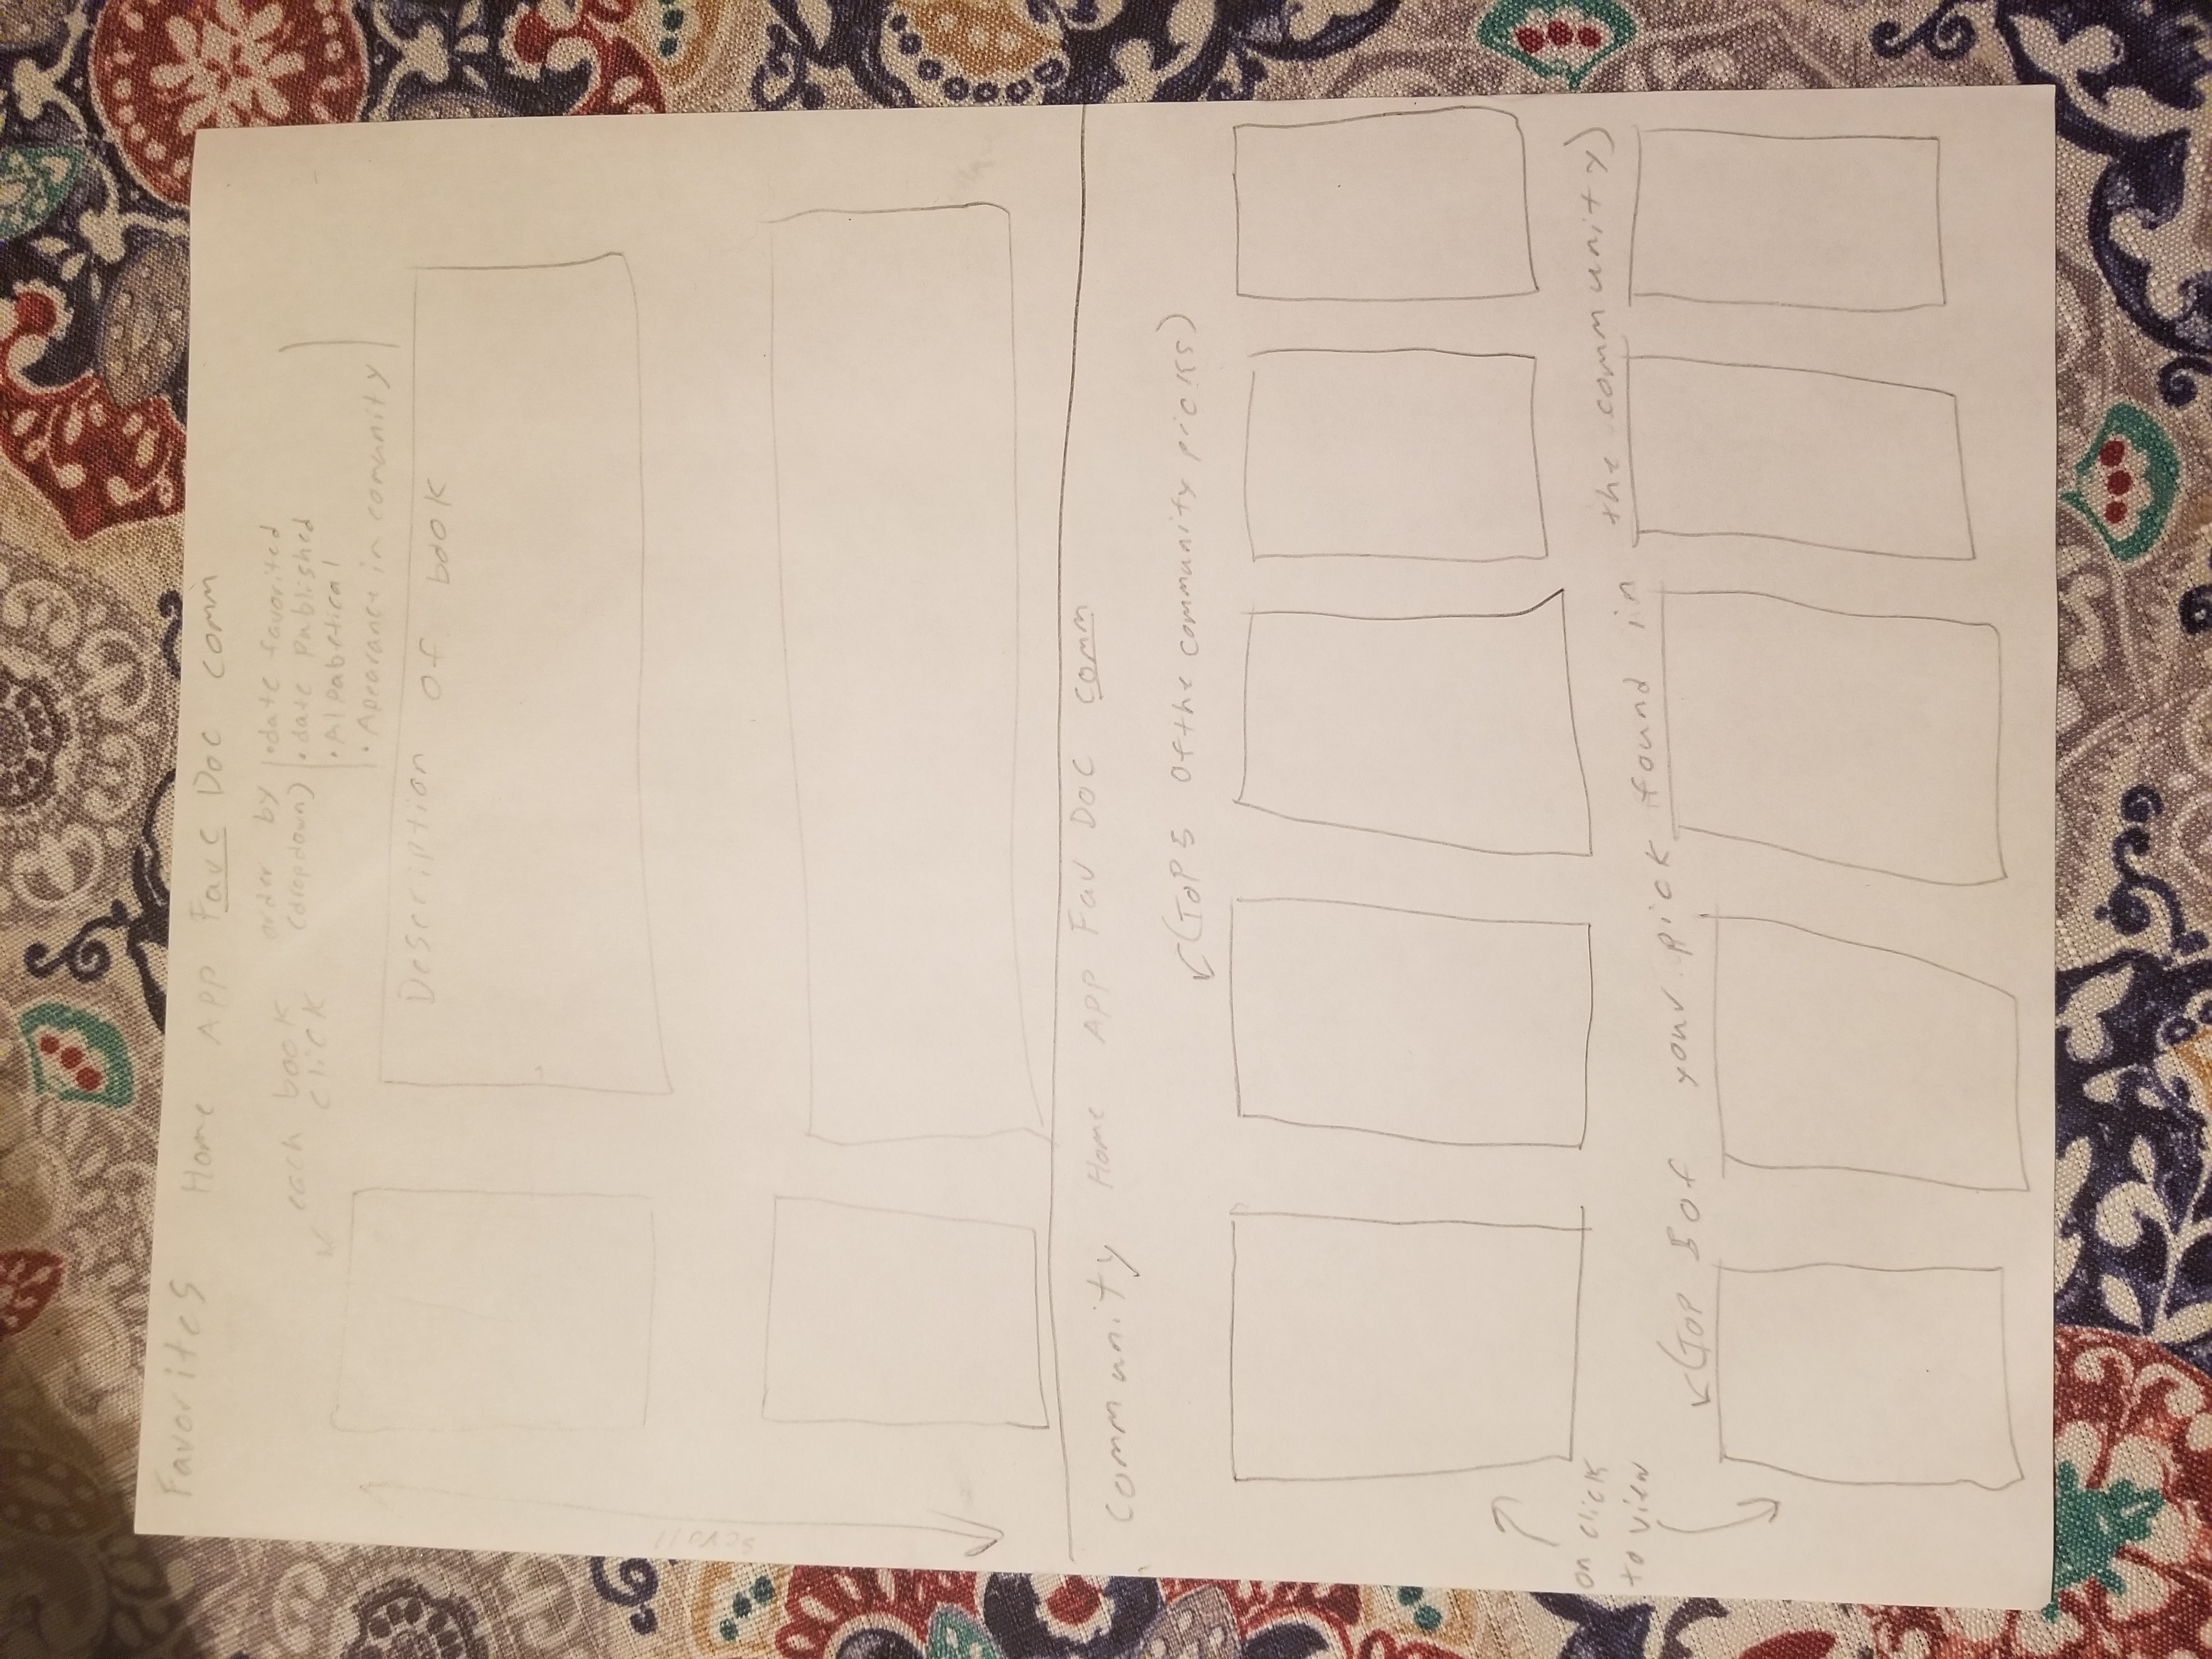 Favorites Home App Fave Doc comm
each book
click
order by
(dropdown)
• date favorited
• date published
• Alpabetical
• Apearance in comunity
Description of book
scroll
Community Home App Fav Doc comm
(Top 5 of the community picks)
on click
to view
(Top 5 of your pick found in the community)